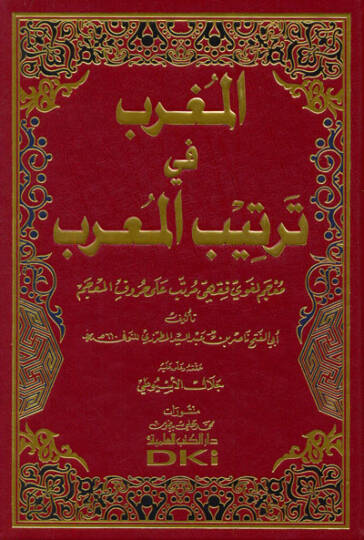 المُغرب
في
تَرتِيْب المُعرب
مُعْجَم لُغَويّ فِقهيّ مُرتّب عَلى حُرُوفِ المُعْجَم
تأليف
أبي الفتح ناصر بن عبد السيد المطرزي المتوفى سنة ٦١٠هـ
جلال الأسيوطي
منشورات
محمد علي بيضون
دار الكتب العلمية
DKi